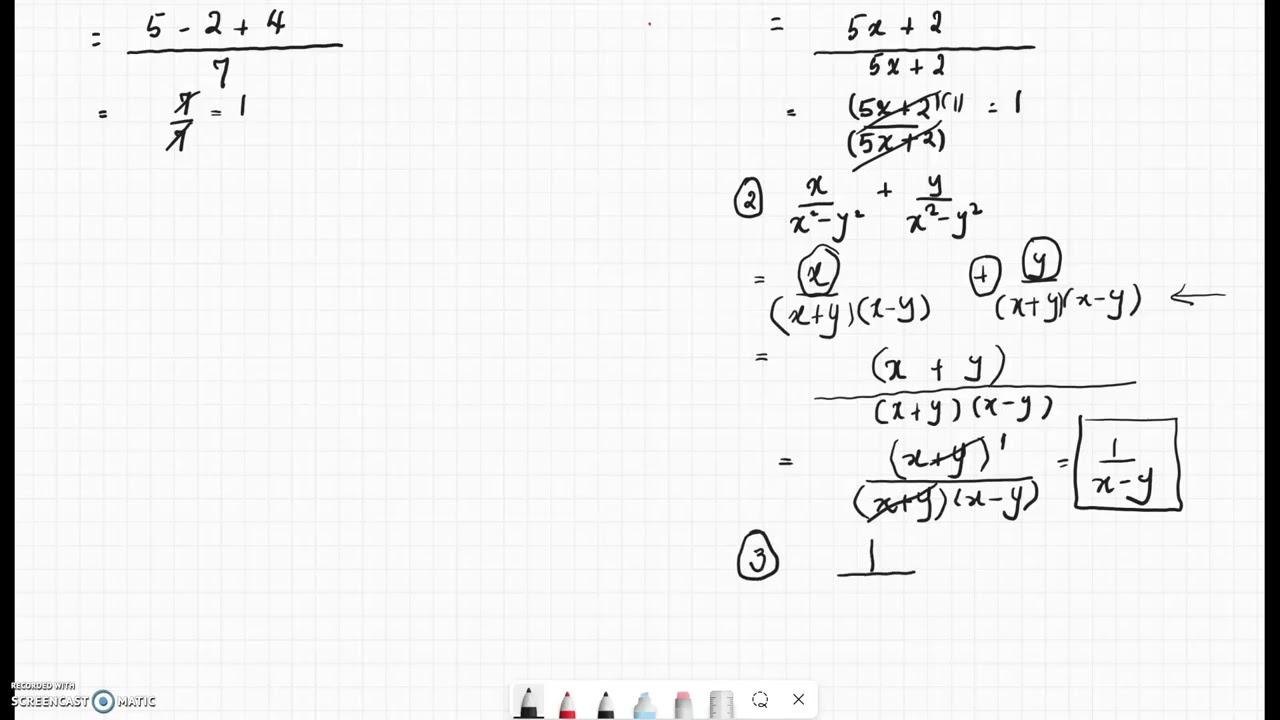 = (5 - 2 + 4)/7
= 7/7 = 1
= (5x + 2)/(5x + 2)
= (5x+2)(1)/(5x+2) = 1
② x/(x² - y²) + y/(x² - y²)
= x/((x+y)(x-y)) + y/((x+y)(x-y)) ←
= (x + y)/((x+y)(x-y))
= (x+y)1/((x+y)(x-y)) = 1/(x-y)
③ 1
RECORDED WITH
SCREENCAST MATIC